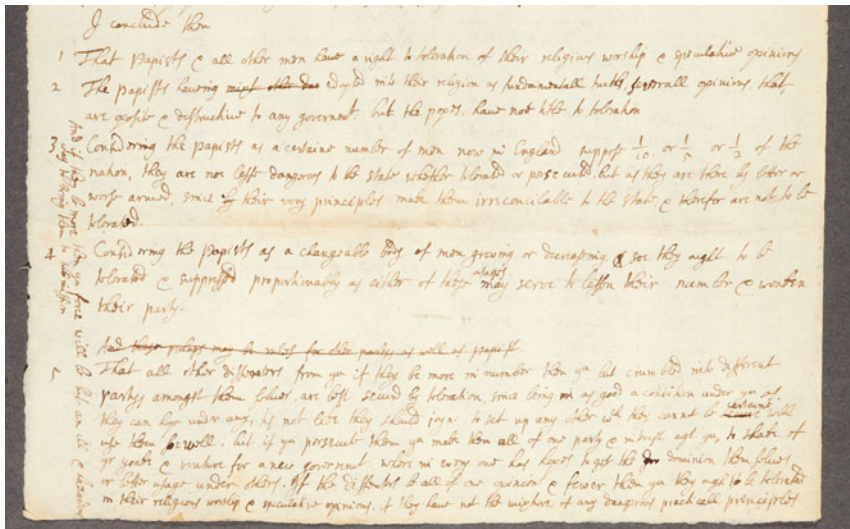 I conclude then
1 That Papists & all other men have a right to toleration of their religious worship & speculative opinions
2 The papists having mixt other adopted into their religion as fundamentall truths, severall opinions, that
are oposite & destructive to any government but the popes, have noe title to toleration
3 Considering the papists as a certaine number of men now in England suppose 1/10 or 1/5 or 1/2 of the
nation, they are not lesse dangerous to the state whether tolerated or persecuted. but as they are there by better or
worse armed, since by their very principles make them irreconcilable to the state & therefor are not to be
tolerated.
4 Considering the Papists as a changeable body of men growing or decreasing, soe they ought to be
tolerated & suppressed proportionably as either of these usages may serve to lessen their number & weaken
their party.
And these rules may be for other partys as well as papist.
5 That all other dissenters from yu if they be more in number then yu but crumbled into different
partys amongst them selves, are best secured by toleration, since being in as good a condition under yu as
they can hope under any, tis not like they should joyne to set up any other wh they cannot be certaine will
use them soe well. but if yu persecute them yu make them all of one party & interest agt yu, to shake of
yr yoake & venture for a new government. where in every one has hopes to get the dominion them selves
or better usage under others. If the dissenters be all of one opinion & fewer then yu they ought to be tolerated
in their religious worship & speculative opinions, if they have not the mixture of any dangerous practicall principles
And if they be more then yu force will be but an ill & hazardous
way to bring them to submission